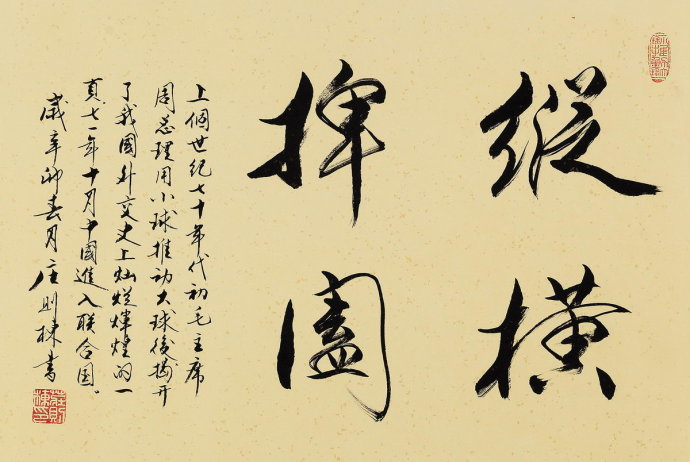 縱橫
捭闔
上個世紀七十年代初毛主席
周总理用小球推动大球後揭开
了我國外交史上灿烂煇煌的一
頁七一年十月中國進入联合国。
歲辛卯春月庄则栋書